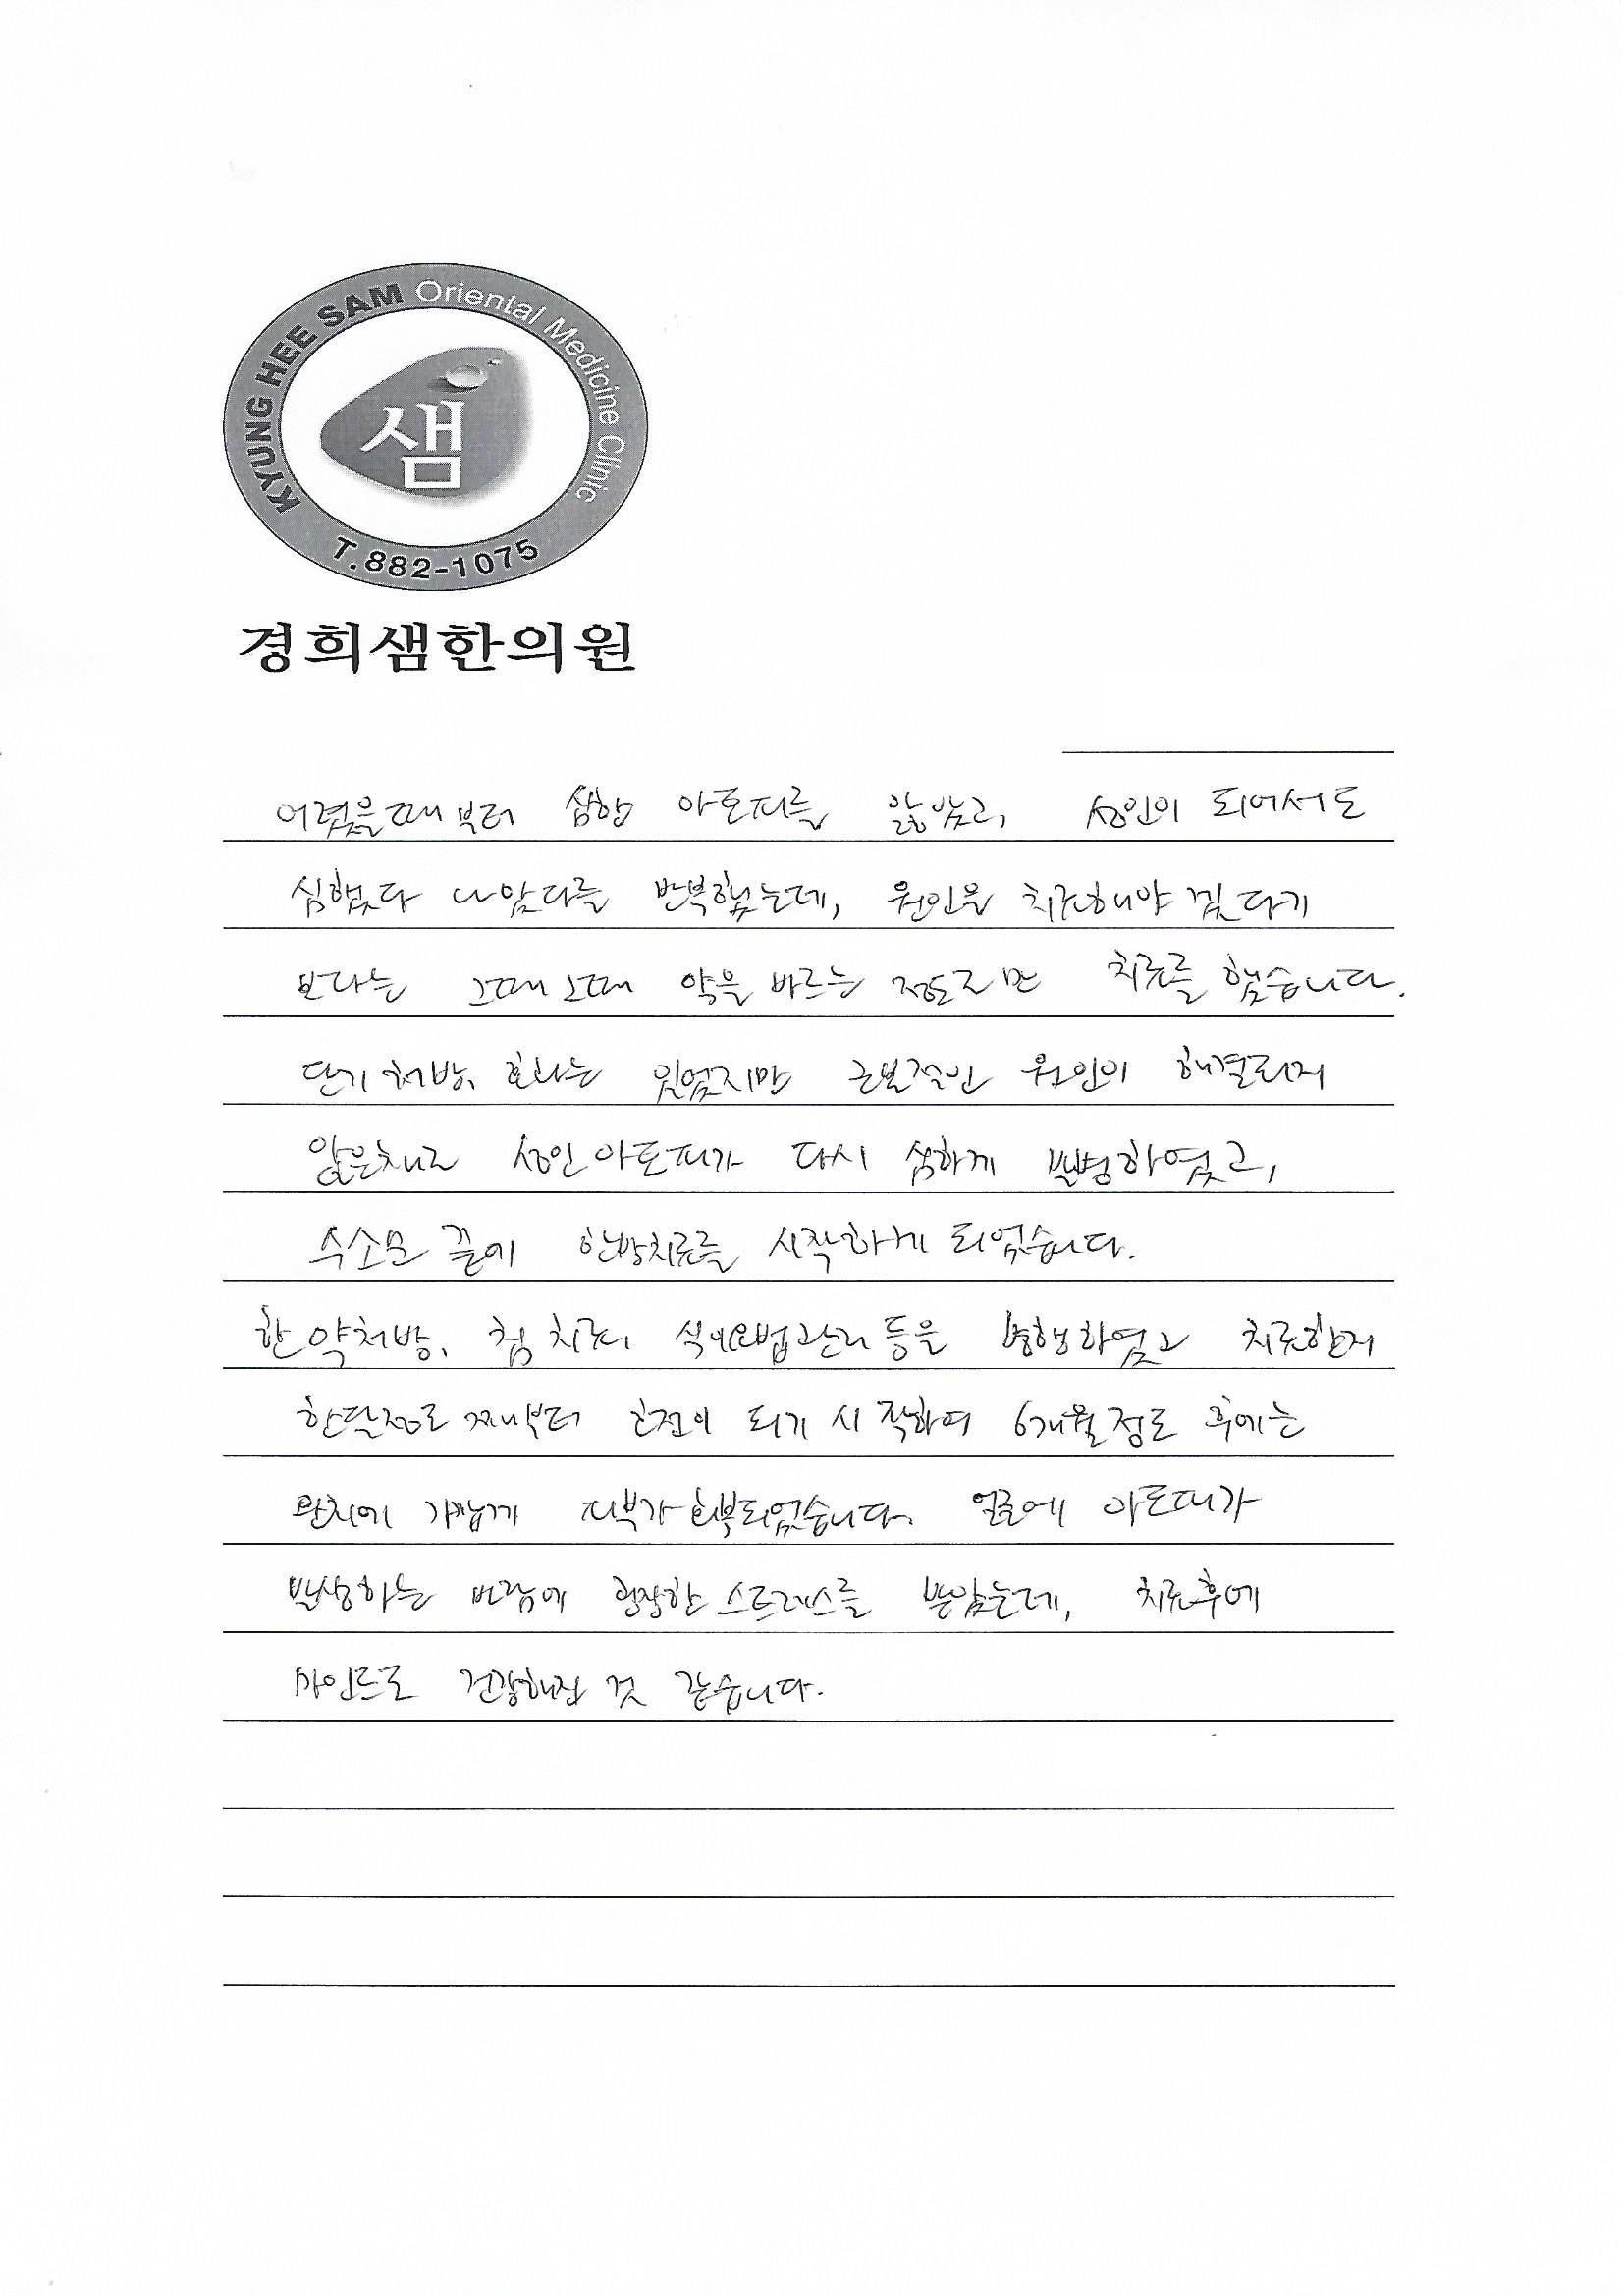 KYUNG HEE SAM Oriental Medicine Clinic
샘
T.882-1075
경희샘한의원
어렸을때부터 심한 아토피를 앓았고, 성인이 되어서도
심했다 나았다를 반복했는데, 원인을 치료해야 겠다기
보다는 그때그때 약을 바르는 정도로만 치료를 했습니다.
단기처방, 효과는 있었지만 근본적인 원인이 해결되지
않은채로 성인아토피가 다시 심하게 발병하였고,
수소문 끝에 한방치료를 시작하게 되었습니다.
한약처방, 침치료, 식이요법관리 등을 병행하였고 치료한지
한달정도 째부터 호전이 되기 시작하여 6개월정도 후에는
완치에 가깝게 피부가 회복되었습니다. 얼굴에 아토피가
발생하는 바람에 굉장한 스트레스를 받았는데, 치료후에
마인드도 건강해진 것 같습니다.